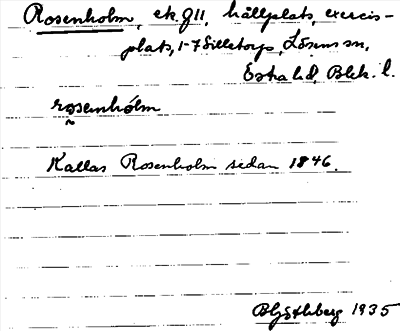 Rosenholm, ek. 911, hållplats, exercis-
plats, 1-7 Silletorp, Lösens sn,
Östra hd, Blek. l.
rosenhólm
Kallas Rosenholm sedan 1846.
1935